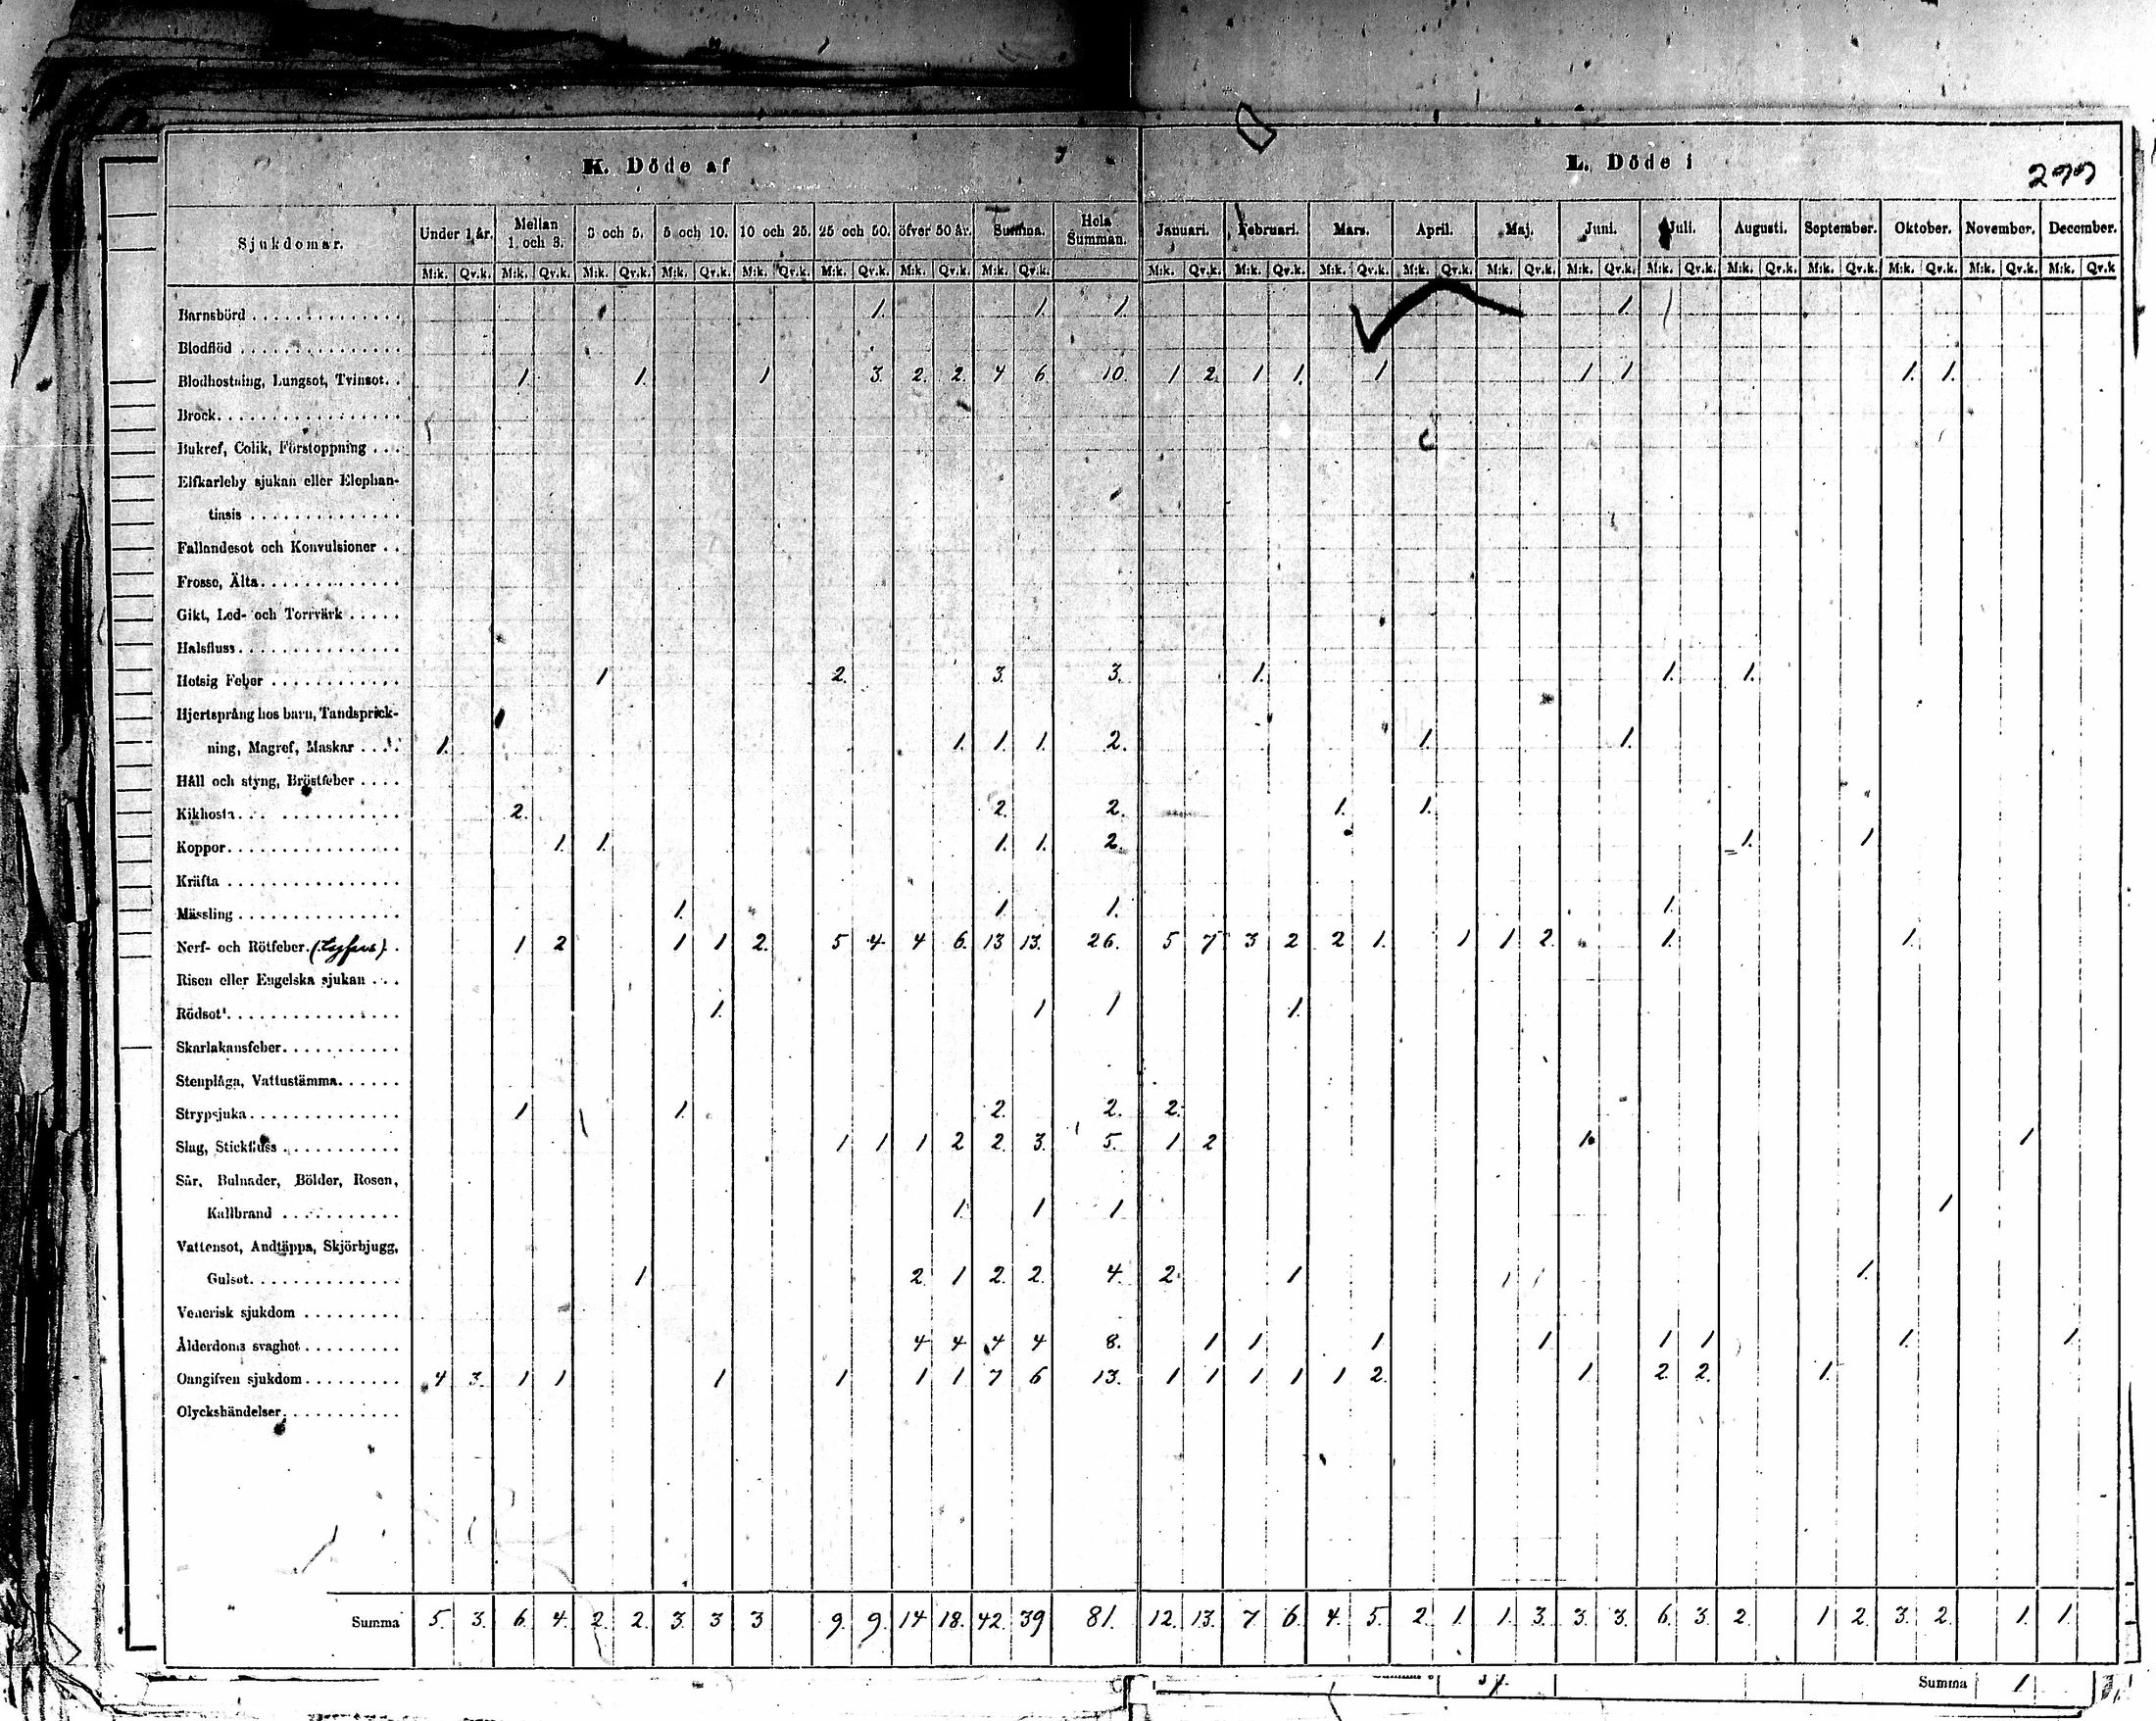 K. Döde af L. Döde i 277
Sjukdomar. Under 1 år. Mellan 1 och 3. 3 och 5. 5 och 10. 10 och 25. 25 och 50. öfver 50 år. Summa. Hela Summan. Januari. Februari. Mars. April. Maj. Juni. Juli. Augusti. September. Oktober. November. December.
M:k. Qv.k. M:k. Qv.k. M:k. Qv.k. M:k. Qv.k. M:k. Qv.k. M:k. Qv.k. M:k. Qv.k. M:k. Qv.k. M:k. Qv.k. M:k. Qv.k. M:k. Qv.k. M:k. Qv.k. M:k. Qv.k. M:k. Qv.k. M:k. Qv.k. M:k. Qv.k. M:k. Qv.k. M:k. Qv.k. M:k. Qv.k. M:k. Qv.k
Barnsbörd 1. 1. 1. 1.
Blodflöd
Blodhostning, Lungsot, Tvinsot. 1. 1. 1 3. 2. 2. 4 6 10. 1 2. 1 1. 1 1 1 1. 1.
Brock
Bukref, Colik, Förstoppning
Elfkarleby sjukan eller Elephan-
tiasis
Fallandesot och Konvulsioner
Frossa, Älta
Gikt, Led- och Torrvärk
Halsfluss
Hetsig Feber 1 2. 3. 3. 1. 1. 1.
Hjertsprång hos barn, Tandsprick-
ning, Magref, Maskar 1. 1. 1. 1. 2. 1. 1.
Håll och styng, Bröstfeber
Kikhosta 2. 2. 2. 1. 1.
Koppor 1. 1. 1. 1. 2. 1. 1
Kräfta
Mässling 1. 1 1. 1.
Nerf- och Rötfeber. (Tyfus) 1 2 1 1 2. 5 4. 4 6. 13 13. 26. 5 7 3 2 2 1. 1 1 2. 1. 1.
Risen eller Engelska sjukan
Rödsot 1. 1 1 1.
Skarlakansfeber
Stenplåga, Vattustämma
Strypsjuka 1 1. 2. 2. 2.
Slag, Stickfluss 1 1 1 2 2 3. 5. 1 2 1. 1
Sår, Bulnader, Bölder, Rosen,
Kallbrand 1. 1 1 1
Vattensot, Andtäppa, Skjörbjugg,
Gulsot 1 2. 1 2. 2. 4. 2. 1 1.
Venerisk sjukdom
Ålderdoms svaghet 4 4 4 4 8. 1 1 1 1 1 1 1. 1.
Oangifven sjukdom 4 3. 1 1 1 1. 1 1 7 6 13. 1 1 1 1 1 2. 1 2. 2. 1.
Olyckshändelser
Summa 5. 3. 6. 4. 2. 2. 3. 3 3 9. 9. 14 18. 42. 39 81. 12. 13. 7. 6. 4. 5. 2. 1. 1. 3. 3. 3. 6. 3. 2. 1 2. 3. 2. 1. 1.
Summa 1